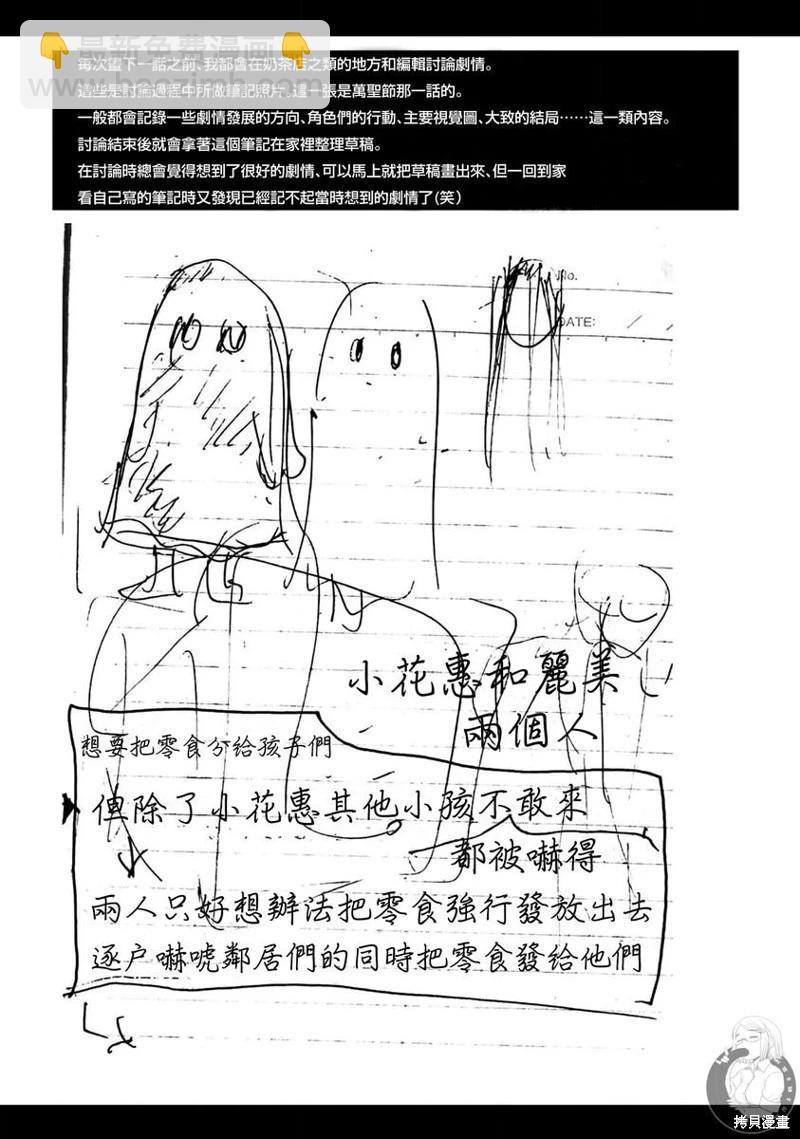 最新免費漫画
baozimh.com
每次畫下一話之前、我都會在奶茶店之類的地方和編輯討論劇情。
這些是討論過程中所做筆記照片、這一張是萬聖節那一話的。
一般都會記錄一些劇情發展的方向、角色們的行動、主要視覺圖、大致的結局……這一類內容。
討論結束後就會拿著這個筆記在家裡整理草稿。
在討論時總會覺得想到了很好的劇情、可以馬上就把草稿畫出來、但一回到家
看自己寫的筆記時又發現已經記不起當時想到的劇情了(笑)
No.
DATE:
小花惠和麗美
兩個人
想要把零食分給孩子們
但除了小花惠其他小孩不敢來
都被嚇得
兩人只好想辦法把零食強行發放出去
逐户嚇唬鄰居們的同時把零食發給他們
拷貝漫畫